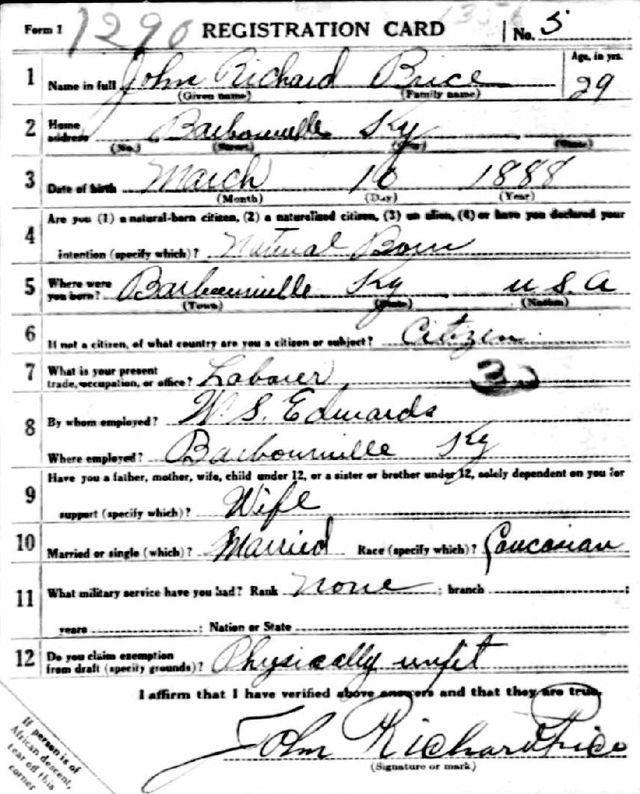 Form 1 1290 REGISTRATION CARD No. 5
1 Name in full John Richard Price Age, in yrs. 29
(Given name) (Family name)
2 Home address Barbourville Ky
(No.) (Street) (City) (State)
3 Date of birth March 10 1888
(Month) (Day) (Year)
4 Are you (1) a natural-born citizen, (2) a naturalized citizen, (3) an alien, (4) or have you declared your
intention (specify which)? Natural Born
5 Where were you born? Barbourville Ky U S A
(Town) (State) (Nation)
6 If not a citizen, of what country are you a citizen or subject? Citizen
7 What is your present trade, occupation, or office? Laborer
8 By whom employed? W. S. Edwards
Where employed? Barbourville Ky
9 Have you a father, mother, wife, child under 12, or a sister or brother under 12, solely dependent on you for
support (specify which)? Wife
10 Married or single (which)? Married Race (specify which)? Caucasian
11 What military service have you had? Rank None ; branch ;
years ; Nation or State
12 Do you claim exemption from draft (specify grounds)? Physically unfit
I affirm that I have verified above answers and that they are true.
John Richard Price
(Signature or mark)
If person is of
African descent,
tear off this
corner